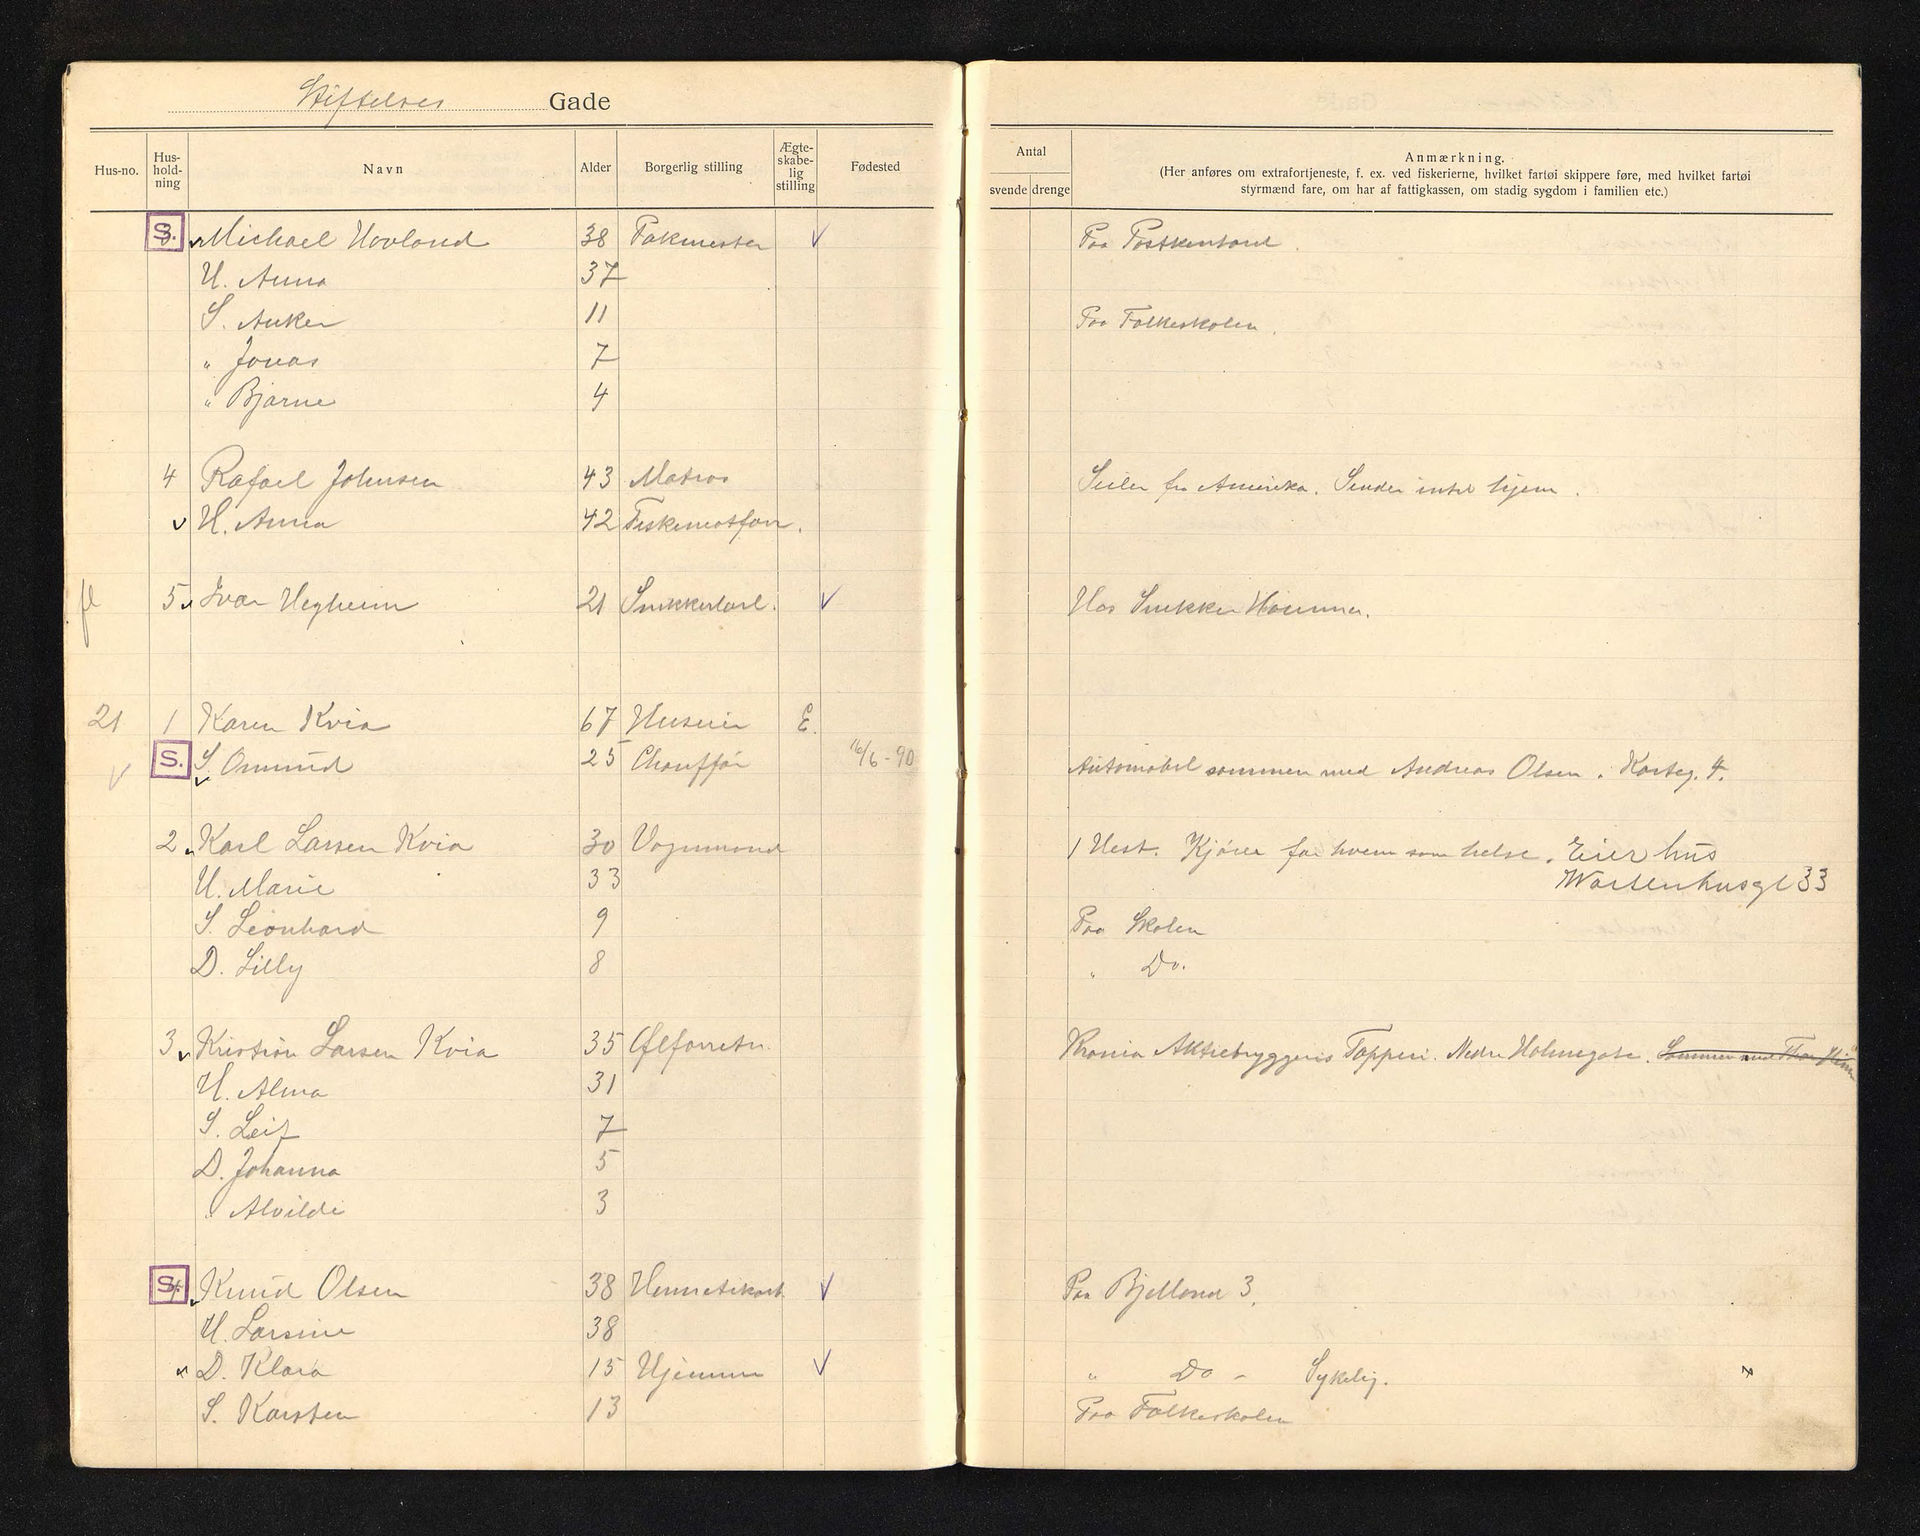 Stiftelses Gade
Hus-no. Hus-hold-ning Navn Alder Borgerlig stilling Ægte-skabe-lig stilling Fødested Antal svende drenge Anmærkning.
(Her anføres om extrafortjeneste, f. ex. ved fiskerierne, hvilket fartøi skippere føre, med hvilket fartøi
styrmænd fare, om har af fattigkassen, om stadig sygdom i familien etc.)
S. Michael Hovland 38 Pakmester Paa Postkontoret.
H. Anna 37
S. Anker 11 Paa Folkeskolen.
" Jonas 7
" Bjarne 4
4 Rafael Johnsen 43 Matros Seiler fra Amerika. Sender intet hjem.
H. Anna 42 Fiskematforr.
fl 5 Ivar Hegheim 21 Snikkerlærl. Hos Snikker Hammer.
21 1 Karen Kvia 67 Huseier E.
S. S. Omund 25 Chauffør 16/6-90 Automobil sammen med Andreas Olsen. Korteg. 4.
2 Karl Larsen Kvia 30 Vognmand 1 Hest. Kjører for hvem som helst. Eier hus
H. Marie 33 Waisenhusgt 33
S. Leonhard 9 Paa Skolen
D. Lilly 8 " Do.
3 Kristian Larsen Kvia 35 Ølforretn. Krania Aktiebryggeris Tapperi. Nedre Holmegate. Sammen med Thor
H. Alma 31
S. Leif 7
D. Johanna 5
" Alvilde 3
S. 4 Knud Olsen 38 Hermetikarb. Paa Bjelland 3.
H. Larsine 38
D. Klara 15 Hjemme " Do - Sykelig.
S. Karsten 13 Paa Folkeskolen